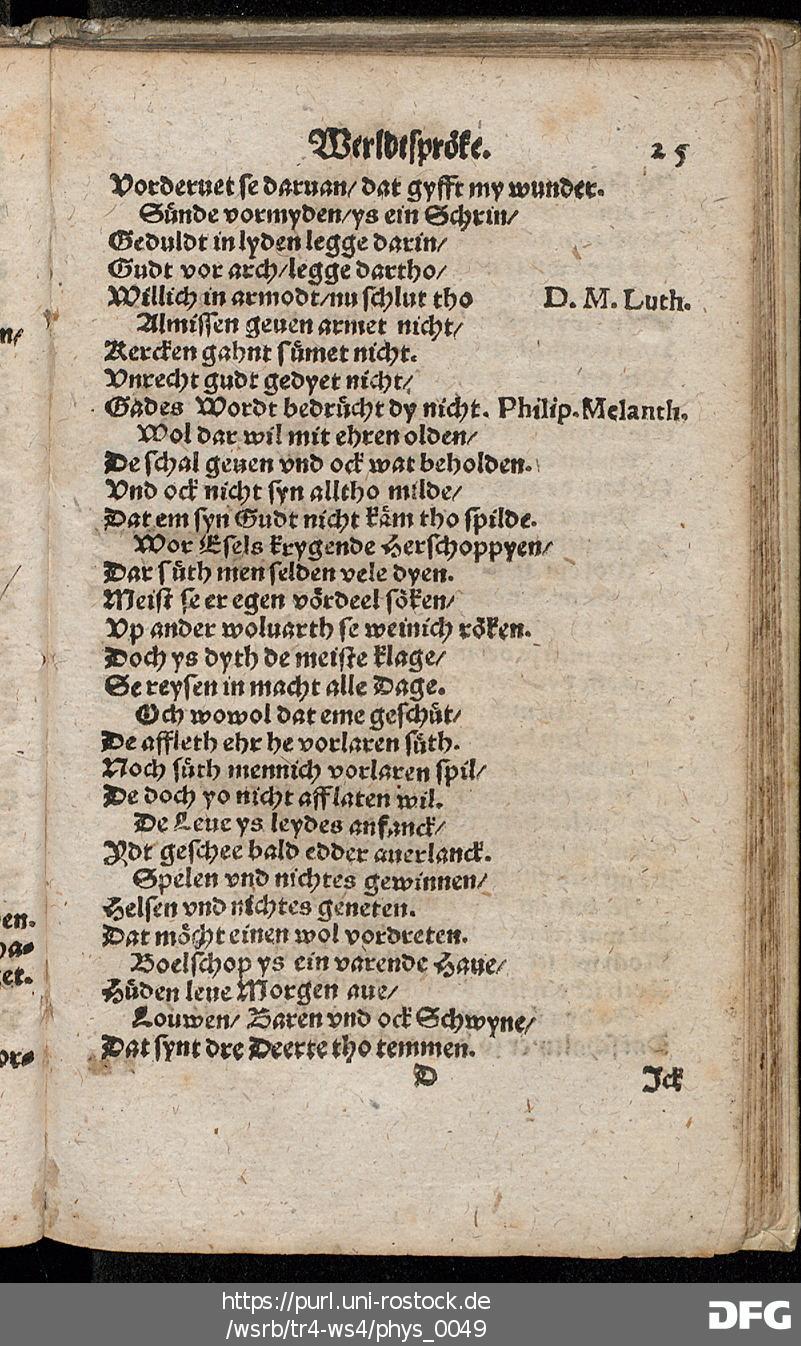 Werldtspröke. 25
Vorderuet se daruan/ dat gyfft my wunder.
Sünde vormyden/ys ein Schrin/
Geduldt in lyden legge darin/
Gudt vor arch/legge dartho/
Willich in armodt/nu schlut tho D. M. Luth.
Almissen geuen armet nicht/
Kercken gahnt sümet nicht.
Vnrecht gudt gedyet nicht/
Gades Wordt bedrücht dy nicht. Philip. Melanth.
Wol dar wil mit ehren olden/
De schal geuen vnd ock wat beholden.
Vnd ock nicht syn alltho milde/
Dat em syn Gudt nicht käm tho spilde.
Wor Esels krygende Herschoppyen/
Dar süth men selden vele dyen.
Meist se er egen vördeel söken/
Vp ander woluarth se weinich röken.
Doch ys dyth de meiste klage/
Se reysen in macht alle Dage.
Och wowol dat eme geschüt/
De affleth ehr he vorlaren süth.
Noch süth mennich vorlaren spil/
De doch yo nicht afflaten wil.
De Leue ys leydes anfanck/
Ydt geschee bald edder auerlanck.
Spelen vnd nichtes gewinnen/
Helsen vnd nichtes geneten.
Dat möcht einen wol vordreten.
Boelschop ys ein varende Haue/
Hüden leue Morgen aue/
Louwen/ Baren vnd ock Schwyne/
Dat synt dre Deerte tho temmen.
D Ick
n/
en.
et.
https://purl.uni-rostock.de
/wsrb/tr4-ws4/phys_0049
DFG